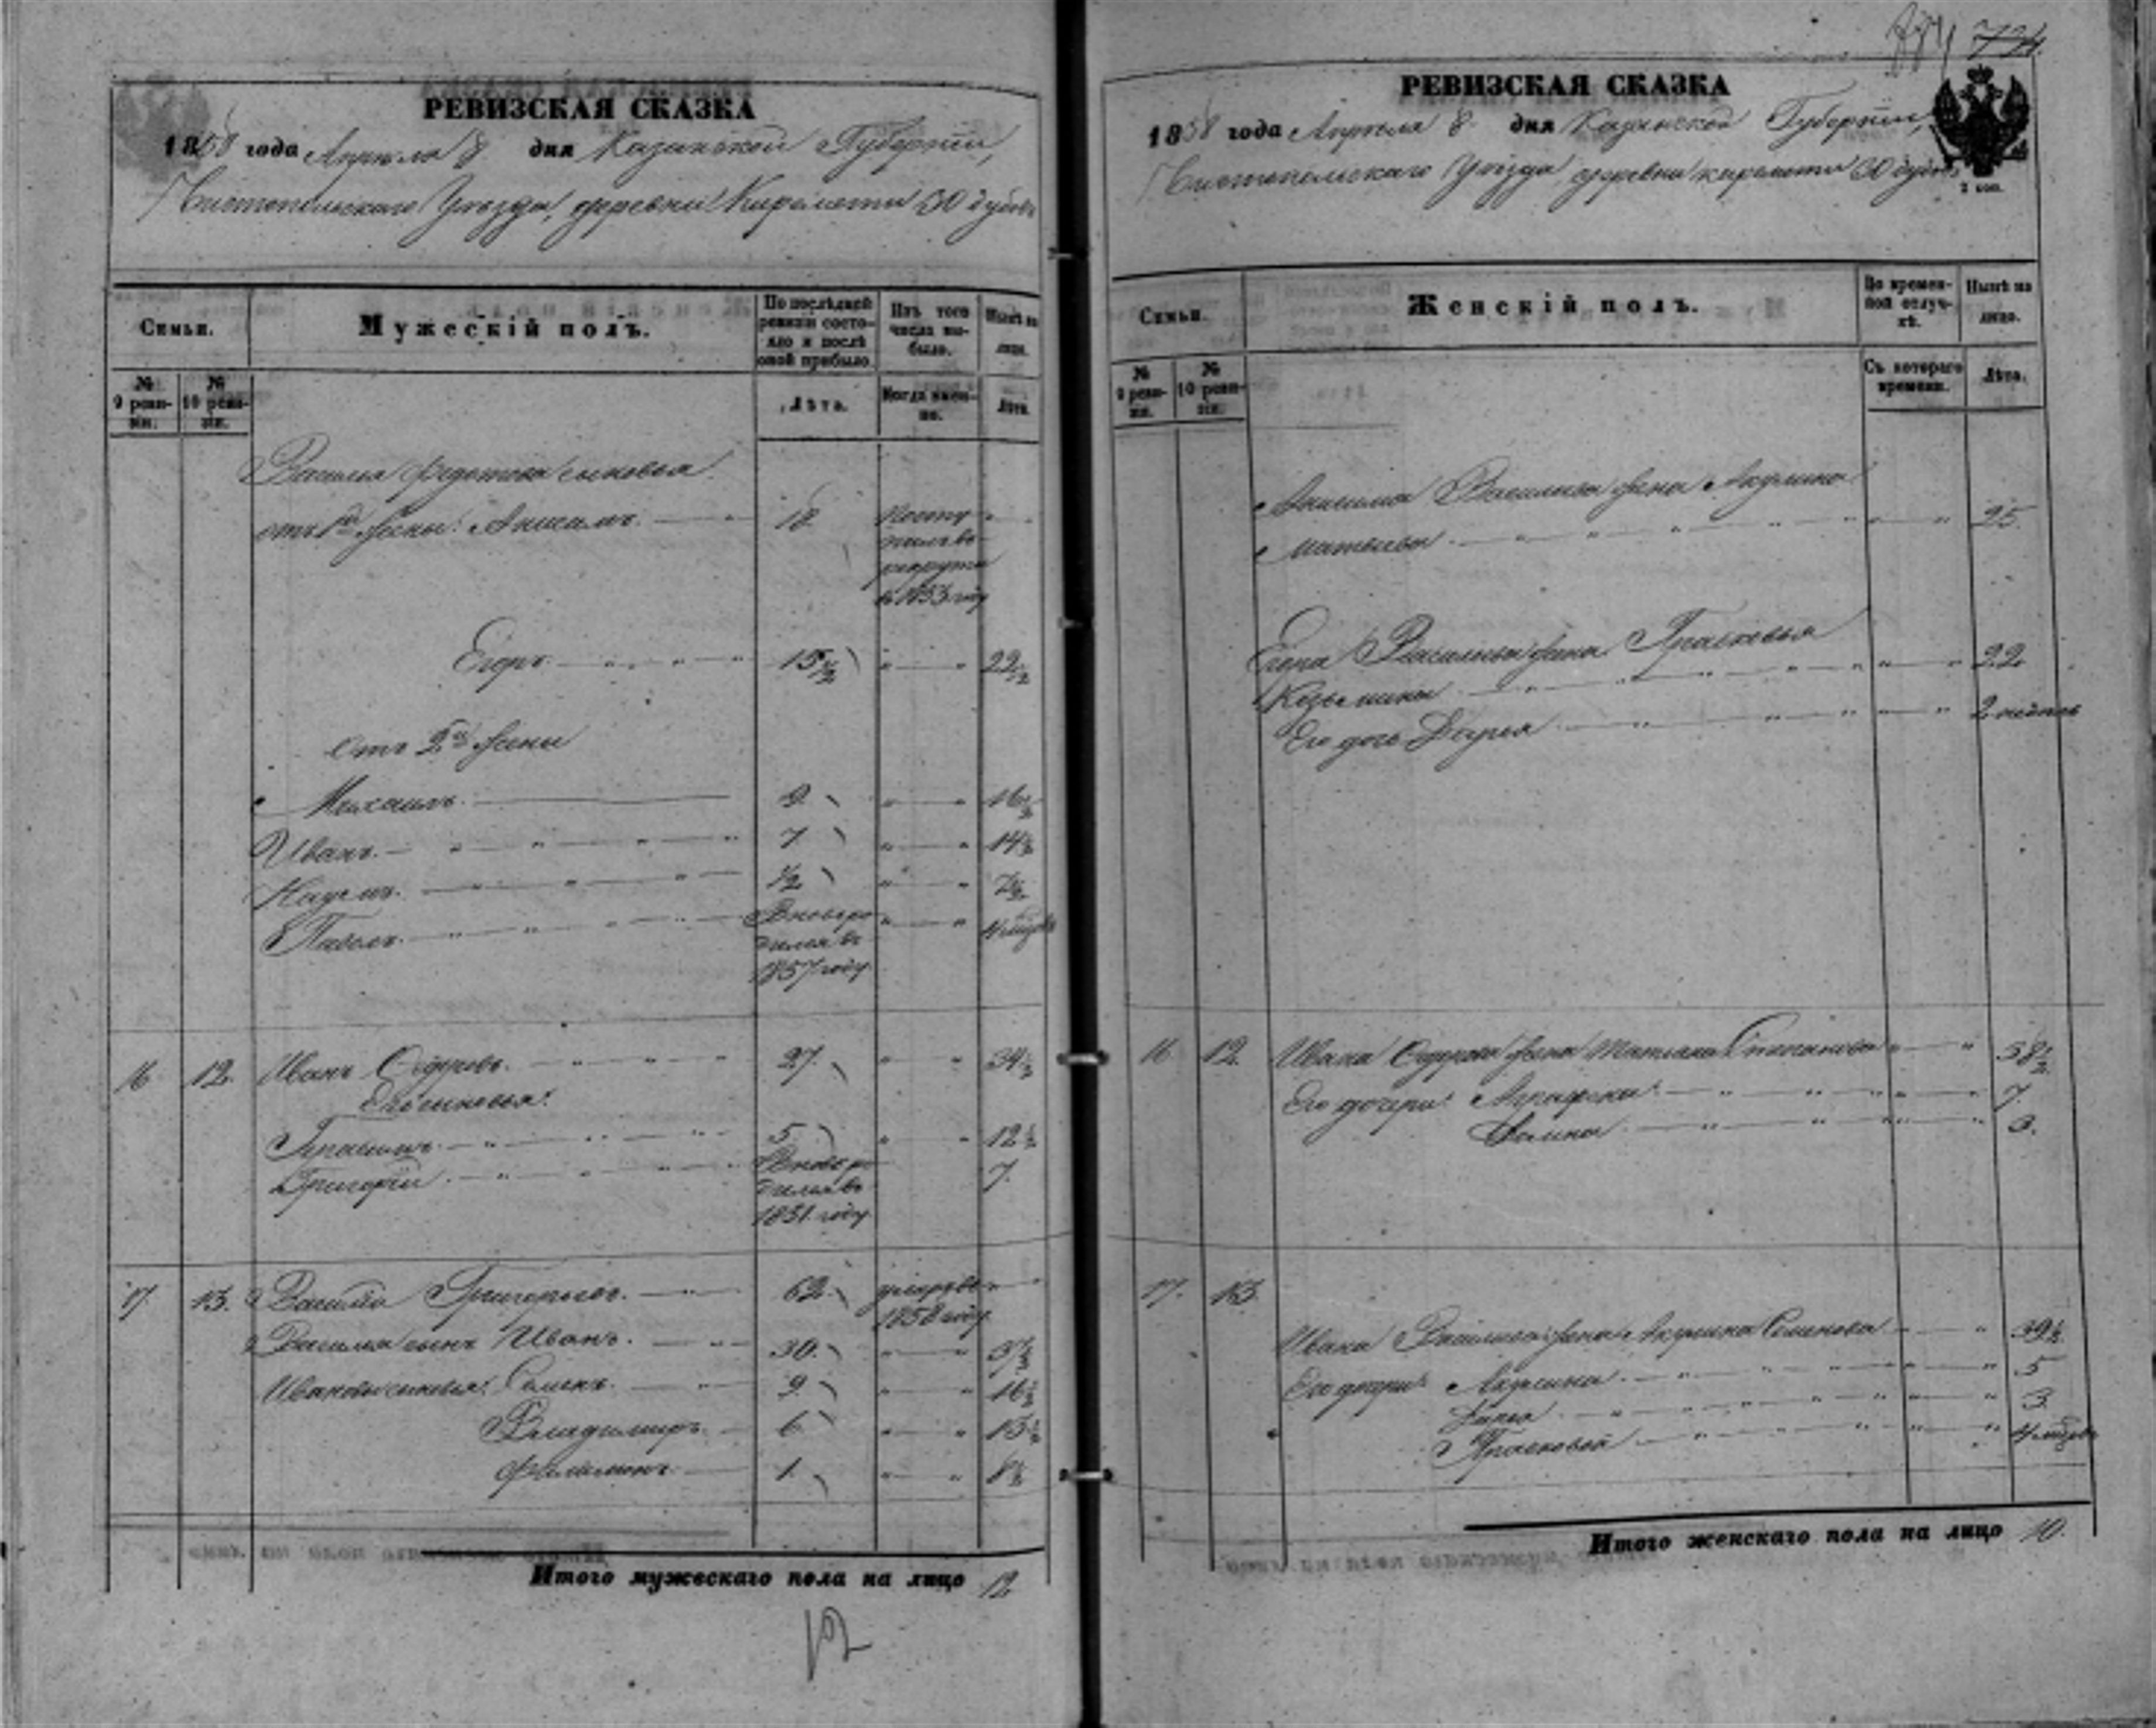 774 724.
РЕВИЗСКАЯ СКАЗКА
1858 года Апреля 8 дня Казанской Губернии,
Чистопольскаго Уезда, деревни Киремети
Семьи.
Мужескій полъ.
По послѣдней ревизіи состояло и послѣ оной прибыло.
Изъ того числа выбыло.
Нынѣ на лицо.
№ 9 ревизіи.
№ 10 ревизіи.
Лѣта.
Когда именно.
Лѣта.
Василья Федотова сыновья
отъ 1й жены: Анисимъ. 18
Поступилъ въ рекруты въ 1853 году
Егоръ 15½ 22½
Отъ 2й жены
Михаилъ. 9 16½
Иванъ. 7 14½
Наумъ. ½ 7½
Павелъ. Вновь родился въ 1857 году
16 12. Иванъ 27. 34½
Его сыновья:
Герасимъ. 5 12½
Григорій. Вновь родился въ 1851 году 7.
17. 13. Василій Григорьевъ. 62. умеръ въ 1858 году
Василья сынъ Иванъ. 30. 37½
Ивановы сыновья: Семенъ. 9 16½
Владимиръ. 6 13½
Филимонъ. 1. 8½
Итого мужескаго пола на лицо 12
12
РЕВИЗСКАЯ СКАЗКА
1858 года Апреля 8 дня Казанской Губерніи,
Чистопольскаго Уезда, деревни Киремети
2 коп.
Семьи.
Женскій полъ.
Во временной отлучкѣ.
Нынѣ на лицо.
№ 9 ревизіи.
№ 10 ревизіи.
Съ котораго времени.
Лѣта.
Анисима Васильева жена Акулина
Матвеева 25.
Егора Васильева жена Прасковья
Козьмина 22
Его дочь Дарья 2 недели
16 12. Ивана жена Татьяна Степанова 38½
Его дочери: Аграфена 7.
3.
17. 13.
Ивана Васильева жена Акулина Семенова 39½
Его дочери: Акулина 5
Дарья 3
Прасковья
Итого женскаго пола на лицо 10.